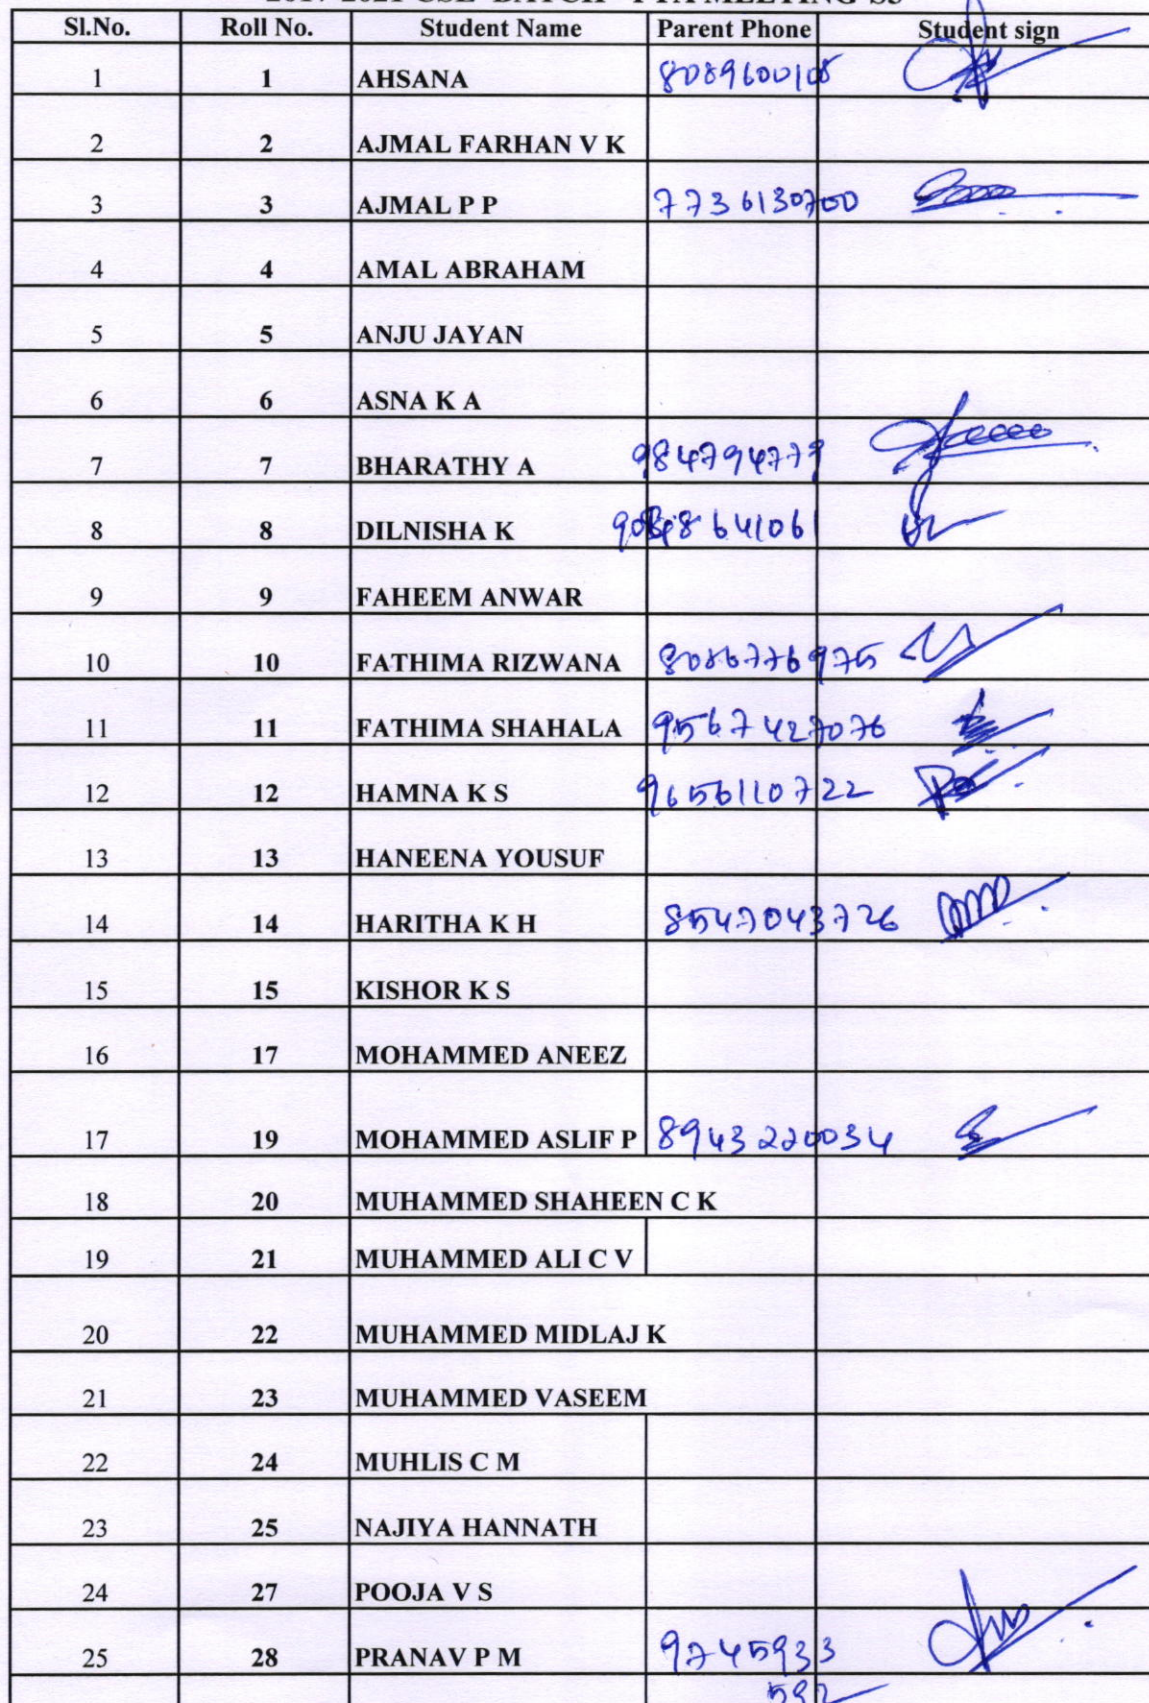 2017-2021 CSE BATCH PTA MEETING S5
Sl.No. Roll No. Student Name Parent Phone Student sign
1 1 AHSANA 8089600108
2 2 AJMAL FARHAN V K
3 3 AJMAL P P 7736130700
4 4 AMAL ABRAHAM
5 5 ANJU JAYAN
6 6 ASNA K A
7 7 BHARATHY A 984794779
8 8 DILNISHA K
9 9 FAHEEM ANWAR
10 10 FATHIMA RIZWANA 8086776975
11 11 FATHIMA SHAHALA 9567427076
12 12 HAMNA K S 9656110722
13 13 HANEENA YOUSUF
14 14 HARITHA K H 8547043726
15 15 KISHOR K S
16 17 MOHAMMED ANEEZ
17 19 MOHAMMED ASLIF P 8943220034
18 20 MUHAMMED SHAHEEN C K
19 21 MUHAMMED ALI C V
20 22 MUHAMMED MIDLAJ K
21 23 MUHAMMED VASEEM
22 24 MUHLIS C M
23 25 NAJIYA HANNATH
24 27 POOJA V S
25 28 PRANAV P M 9745933
592